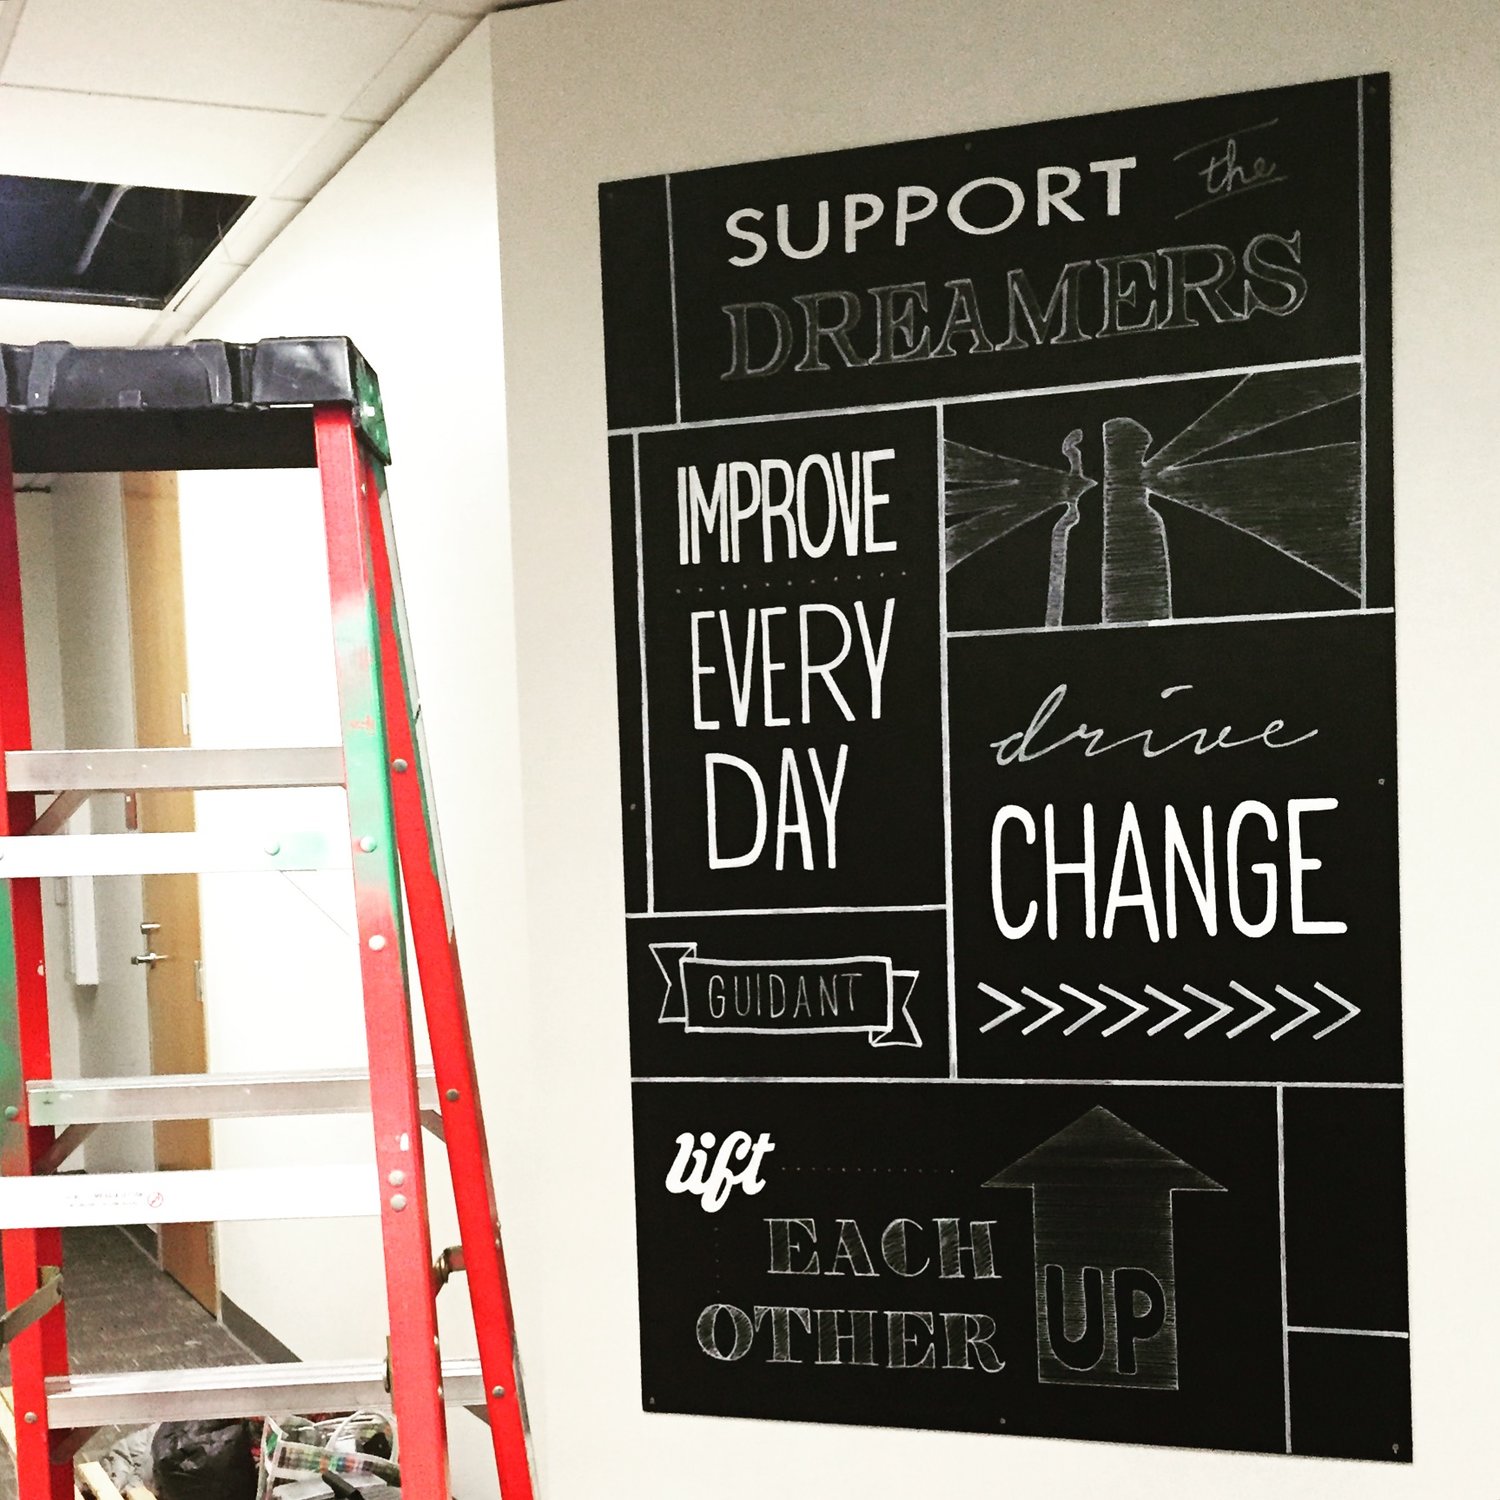 SUPPORT the
DREAMERS
IMPROVE
EVERY
DAY
drive
CHANGE
>>>>>>>>>
GUIDANT
lift
EACH
OTHER
UP